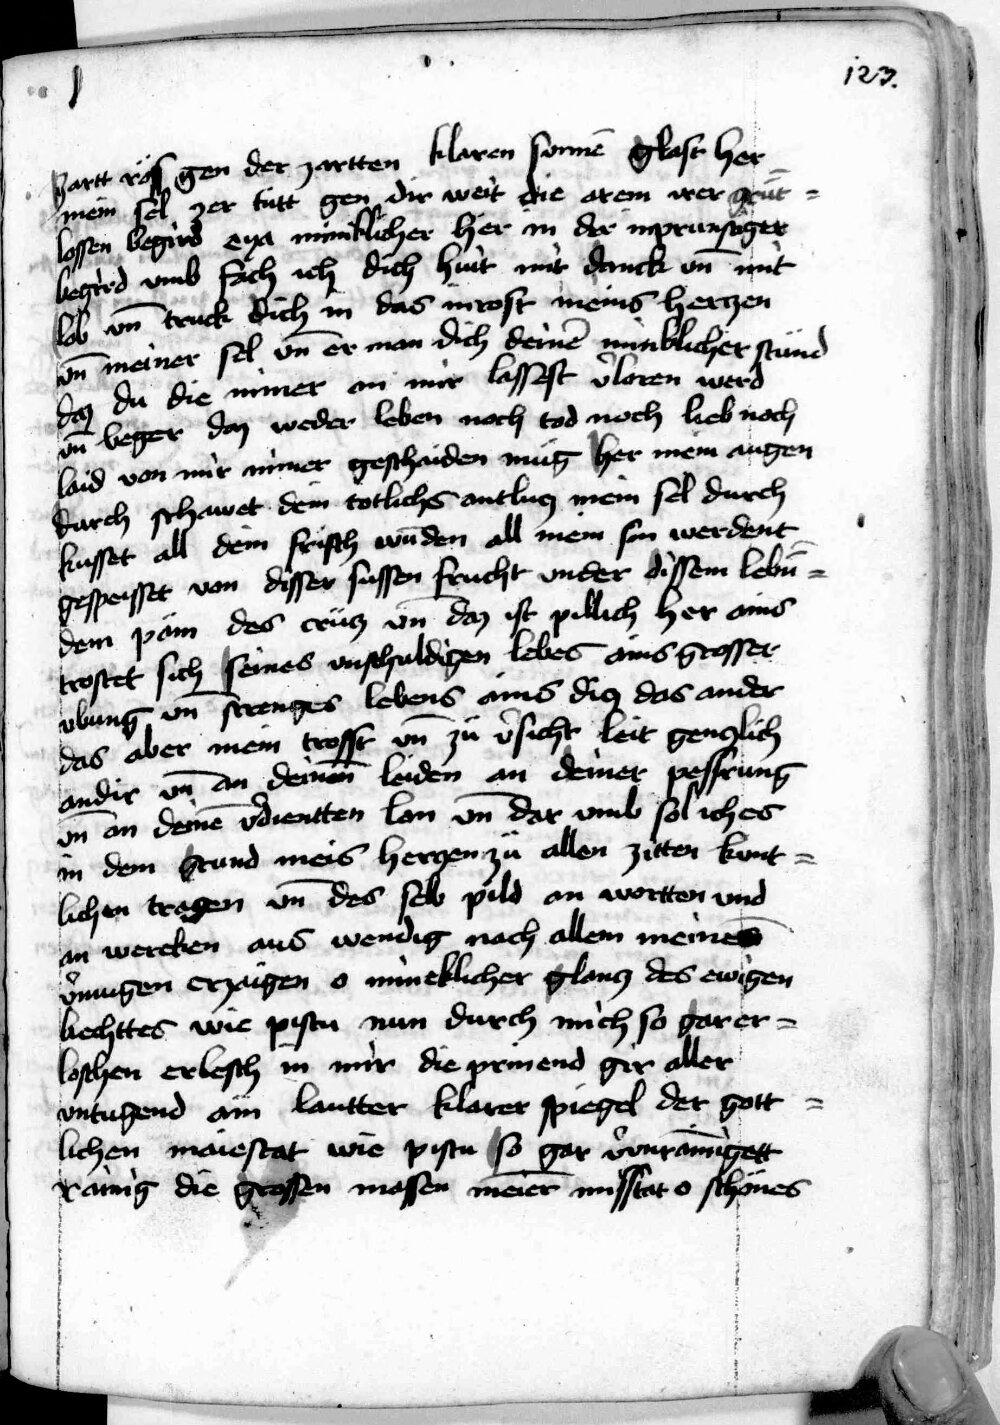 123.
zartt rös gen der zartten klaren sunnē glast her
mein sel zer tutt gen dir weit die arem wer grüt =
lossen begird eya miniklicher her in der inprunstiger
begird vmb fach ich dich hüt mit danck vn̄ mit
lob vn̄ truck dich in das inrost meins herczen
vn̄ meiner sel vn̄ er man dich deinē miniklicher stund
daz du die nimer an mir lassest v̉loren werd
vn̄ beger daz weder leben noch tod noch lieb noch
laid von mir nimer geschaiden müg her mein augen
durch schawet dein totlichs antlucz mein sel durch
kusset all dein frisch wūden all mein sin werdent
gespeisset von disser sussen frucht vnder dissem lebn̄ =
dem pām des crücz vn̄ daz ist pillich her ains
trostet sich seines vnschuldigen lebēs ains grosser
vbung vn̄ strenges lebens ains dicz das ander
das aber mein trosst vn̄ zü v̉sicht leit genczlich
an dir vn̄ an deinen leiden an deiner pessrung
vn̄ an deinē v̉dientten lon vn̄ dar vmb sol iches
in dem grund meis herczen zü allen zitten kunt =
lichen tragen vn̄ des selb pild an wortten vnd
an wercken aus wendig nach allem meinem
v̉mugen erzaigen o mineklicher glancz des ewigen
liechttes wie pistu nun durch mich so gar er =
loschen erlesch in mir die prinend gir aller
vntugend ain lautter klarer spiegel der gott =
lichen maiestat wie pistu so gar v̉vnrainigett
rainig die grossen massen meīer misstat o schönes